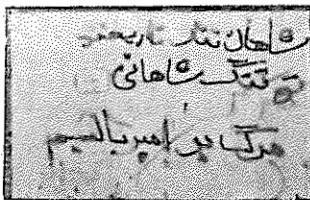 شاهان ننگ تاریخند
ننگ شاهانی
مرگ بر امپریالیسم